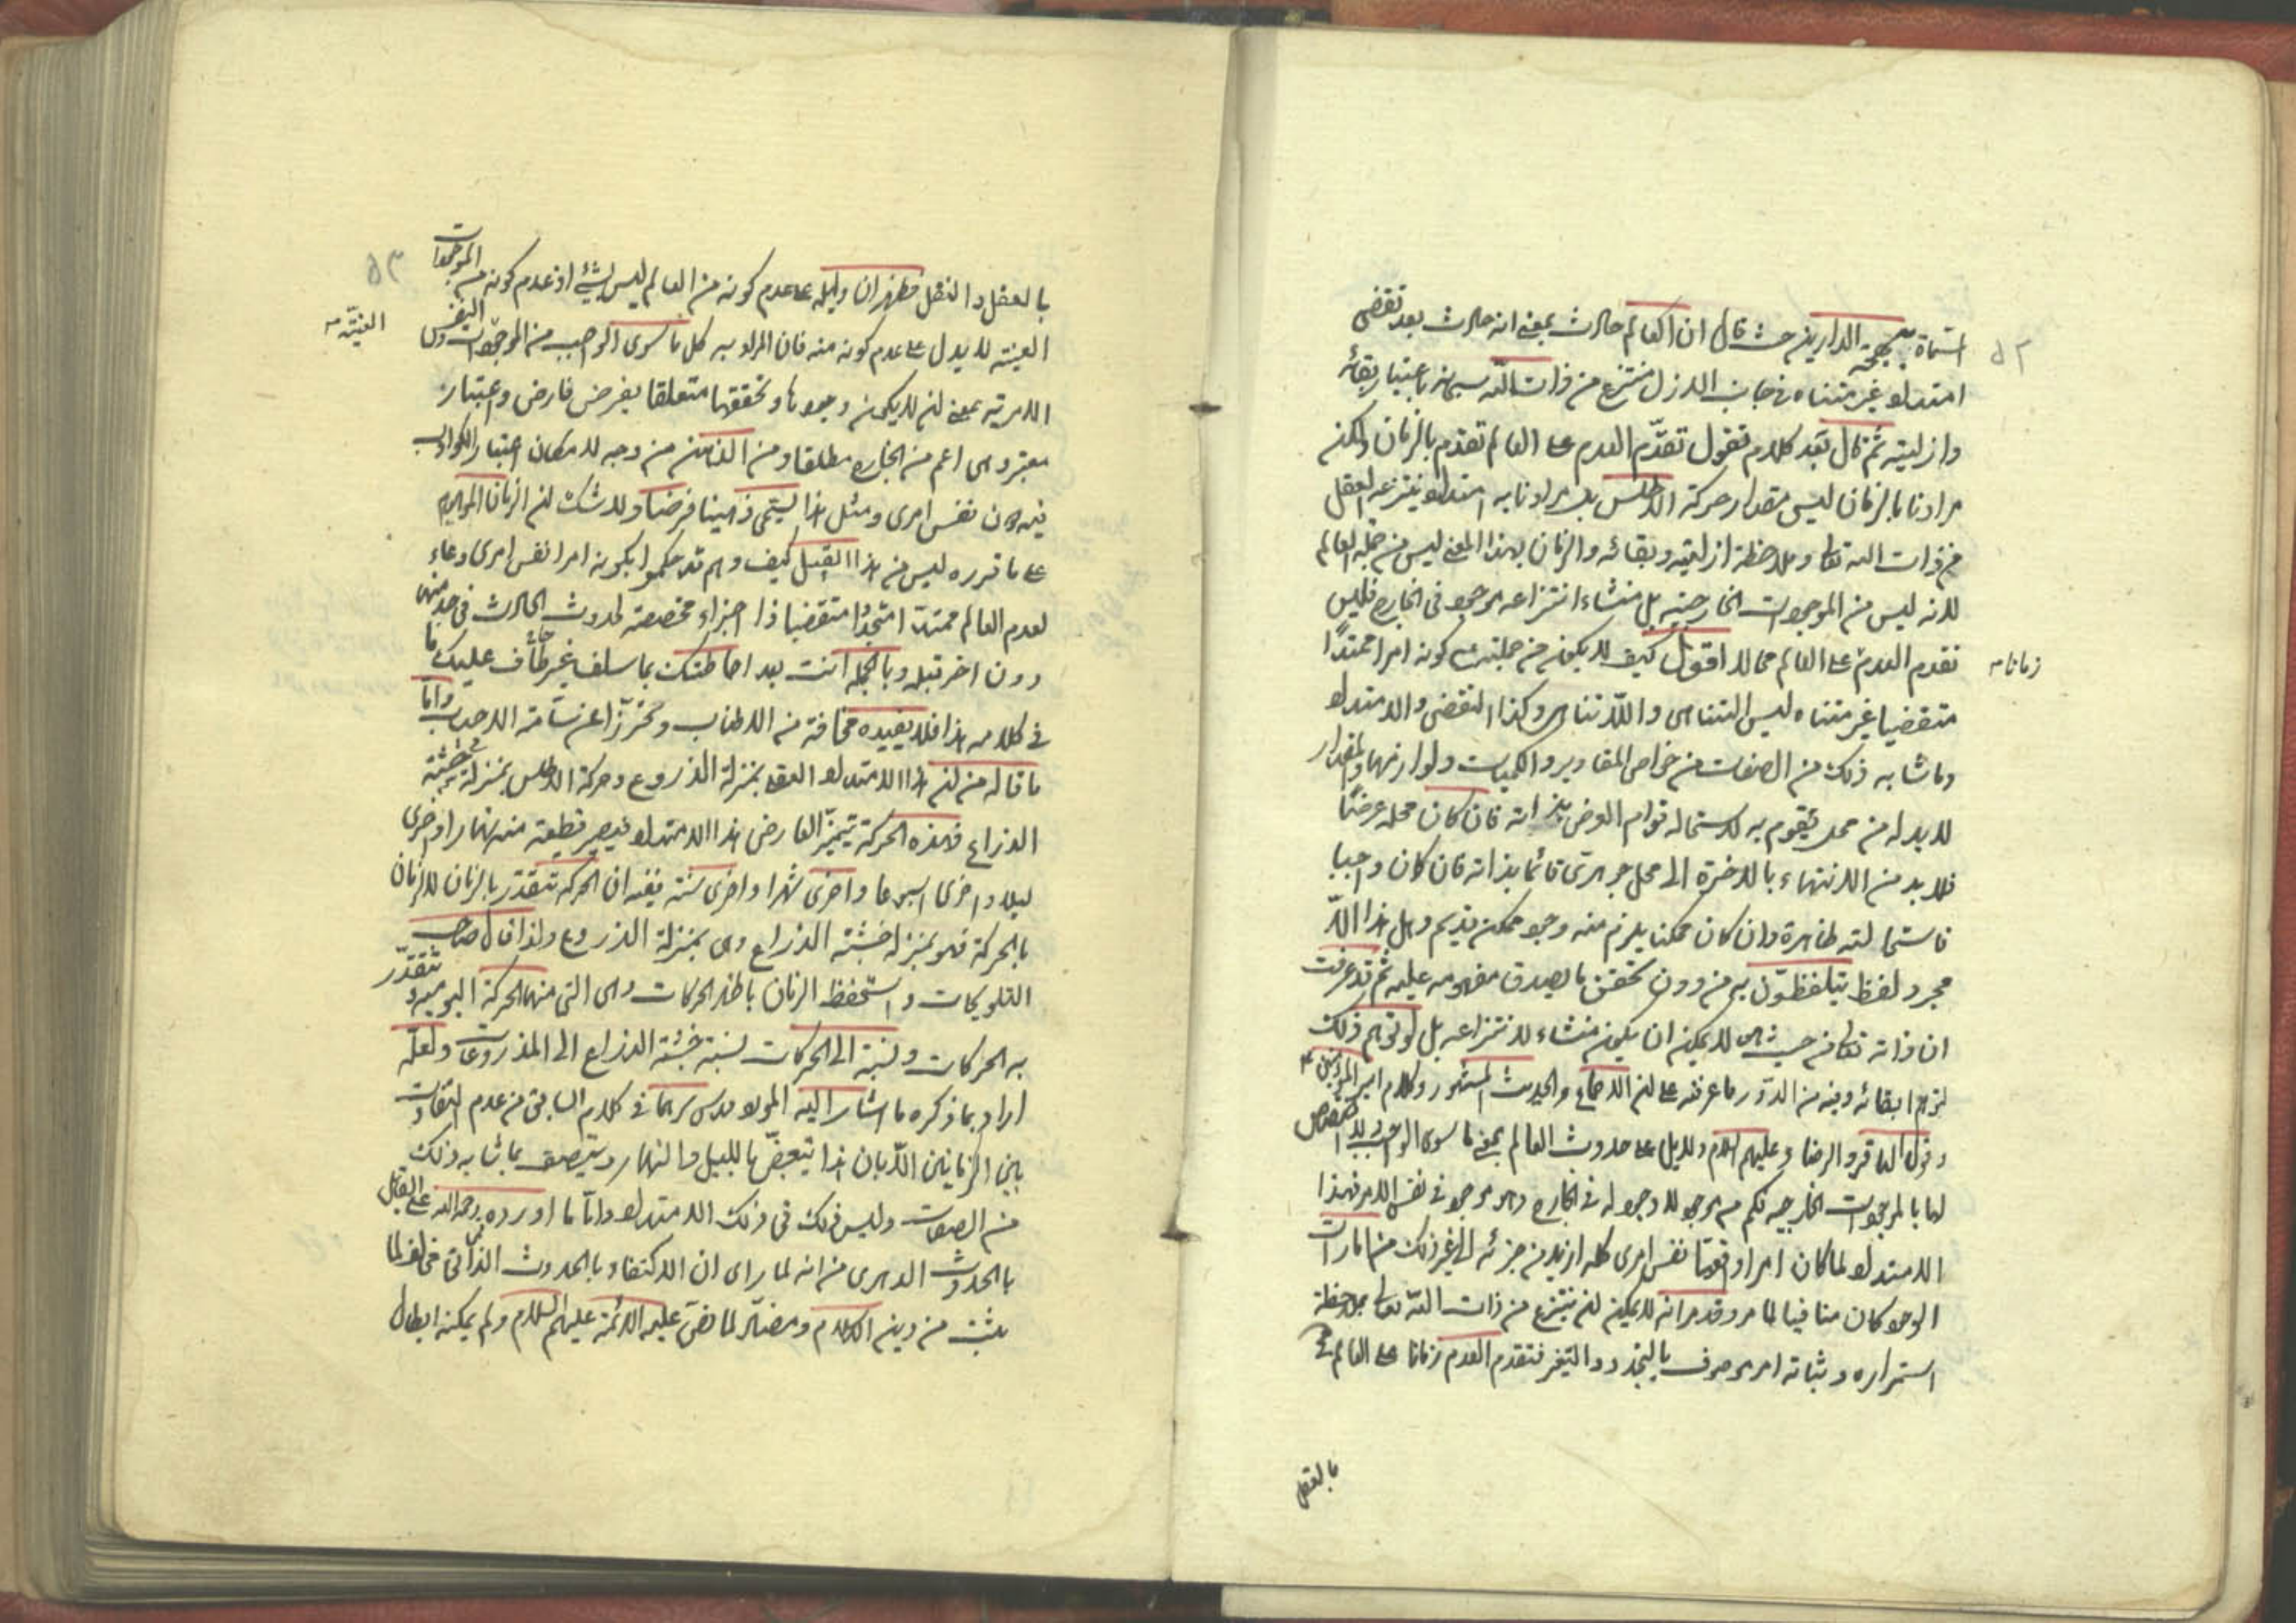 ٥٢
المسماة ببهجة الدارين حيث قال ان العالم حادث بمعنى انه حادث بعد تقضى
امتداد غير متناه في جانب الازل منتزع من ذات الله سبحانه باعتبار بقائه
وازليته ثم قال بعد كلام فنقول تقدّم العدم على العالم تقدم بالزمان ولكن
مرادنا بالزمان ليس مقدار حركة الاطلس بل مرادنا به امتداد ينتزعه العقل
من ذات الله تعالى وملاحظة ازليته وبقائه والزمان بهذا المعنى ليس من جملة العالم
لانه ليس من الموجودات الخارجية بل منشاء انتزاعه موجود في الخارج فليس
تقدم العدم على العالم محالا اقول كيف لا يكون من جملته مع كونه امرا ممتدًا
زمانا
متقضيا غير متناه ليس التناهى واللاتناهى وكذا التقضى والامتداد
وما شابه ذلك من الصفات من خواص المقادير والكميات ولوازمها والمقدار
لا بد له من محل يقوم به لاستحالة قوام العرض بذاته فان كان محله عرضًا
فلا بد من الانتهاء بالاخرة الى محل جوهرى قائما بذاته فان كان واجبا
فاستحالته ظاهرة وان كان ممكنا يلزم منه وجود ممكن قديم وهل هذا الّا
مجرد لفظ يتلفظّون به من دون تحقق ما يصدق مفهومه عليه ثم قد عرفت
ان ذاته تعالى من حيث هى لا يمكن ان يكون منشاء لانتزاعه بل لو توهم ذلك
لتوهم ابقائه وفيه من الدور ما عرفته على ان الاجماع والحديث المشهور وكلام امير المؤمنين
وقول الباقر والرضا وعليهم السلام دليل على حدوث العالم بمعنى ما سوى الواجب ولا اختصاص
لها بالموجودات الخارجية فكم من موجود لا وجود له في الخارج وهو موجود في نفس الامر فهذا
الامتداد لما كان امرا واقعيّا نفس امرى كله ازيد من جزئه الى غير ذلك من امارات
الوجود كان منافيا لما مر وقد مر انه لا يمكن ان ينتزع من ذات الله تعالى بملاحظة
استمراره وثباته امر موصوف بالتجدد والتغير فتقدم العدم زمانا على العالم
بالعقل
٥٣
بالعقل والنقل فظهر ان دليله على عدم كونه من العالم ليس بشئ اذ عدم كونه من الموجودات
العينية لا يدل على عدم كونه منه فان المراد به كل ما سوى الواجب من الموجودات النفس
العينيّة
الامرية بمعنى ان لا يكون وجودها وتحققها متعلقا بفرض فارض واعتبار
معتبر وهى اعم من الخارج مطلقا ومن الذهن من وجه لامكان اعتبار الكواذب
فيه لا في نفس امرى ومثل هذا يسمى ذهينا فرضيا ولا شك ان الزمان الموهوم
على ما قرره ليس من هذا القبيل كيف وهم قد حكموا بكونه امرا نفس امرى وعاء
لعدم العالم ممتدا متجددا متقضيا ذا اجزاء مخصصة لحدوث الحادث في حد منها
دون اخر قبله وبالجملة انت بعد احاطتك بما سلف غير خاف عليك ما
في كلامه هذا فلا يفيده مخافة من الاطناب وتحرزّا عن سآمة الاحباب وامّا
ما قاله من ان هذا الامتداد العقلى بمنزلة المذروع وحركة الاطلس بمنزلة خشبة
الذراع فبهذه الحركة يتميّز الفارض هذا الامتداد فيصير قطعة منه نهارا واخرى
ليلا واخرى اسبوعا واخرى شهرا واخرى سنة ففيه ان الحركة تتقدّر بالزمان لا الزمان
بالحركة فهو بمنزلة خشبة الذراع وهى بمنزلة المذروع ولذا قال صاحب
التلويحات واستحفظ الزمان باظهر الحركات وهى التى منها الحركة اليومية وتتقدّر
به الحركات ونسبته الى الحركات نسبة خشبة الذراع الى المذروعات ولعلّه
اراد بما ذكره ما اشار اليه المولا قدس سرهما في كلام السابق من عدم التفاوت
بين الزمانين الّا بان هذا يتبعضّ بالليل والنهار ويتصف بما شابه ذلك
من الصفات وليس ذلك في ذلك الامتداد وامّا ما اورده رحمه الله على القائل
بالحدوث الدهرى من انه لما راى ان الاكتفاء بالحدوث الذاتى مخالف لما
يثبت من دين الاسلام ومضادّ لما نصّ عليه الائمة عليهم السلام ولم يمكنه ابطال